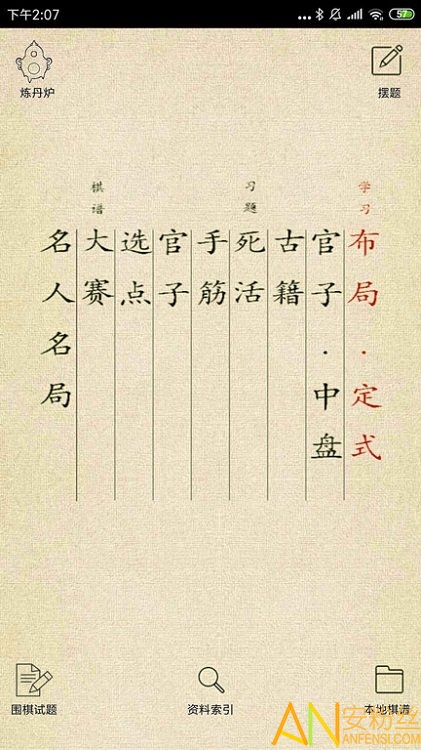 下午2:07
57
炼丹炉
摆题
学习
布局·定式
官子·中盘
习题
古籍
死活
手筋
官子
选点
棋谱
大赛
名人名局
围棋试题
资料索引
本地棋谱
AN安粉丝
ANFENSI.COM